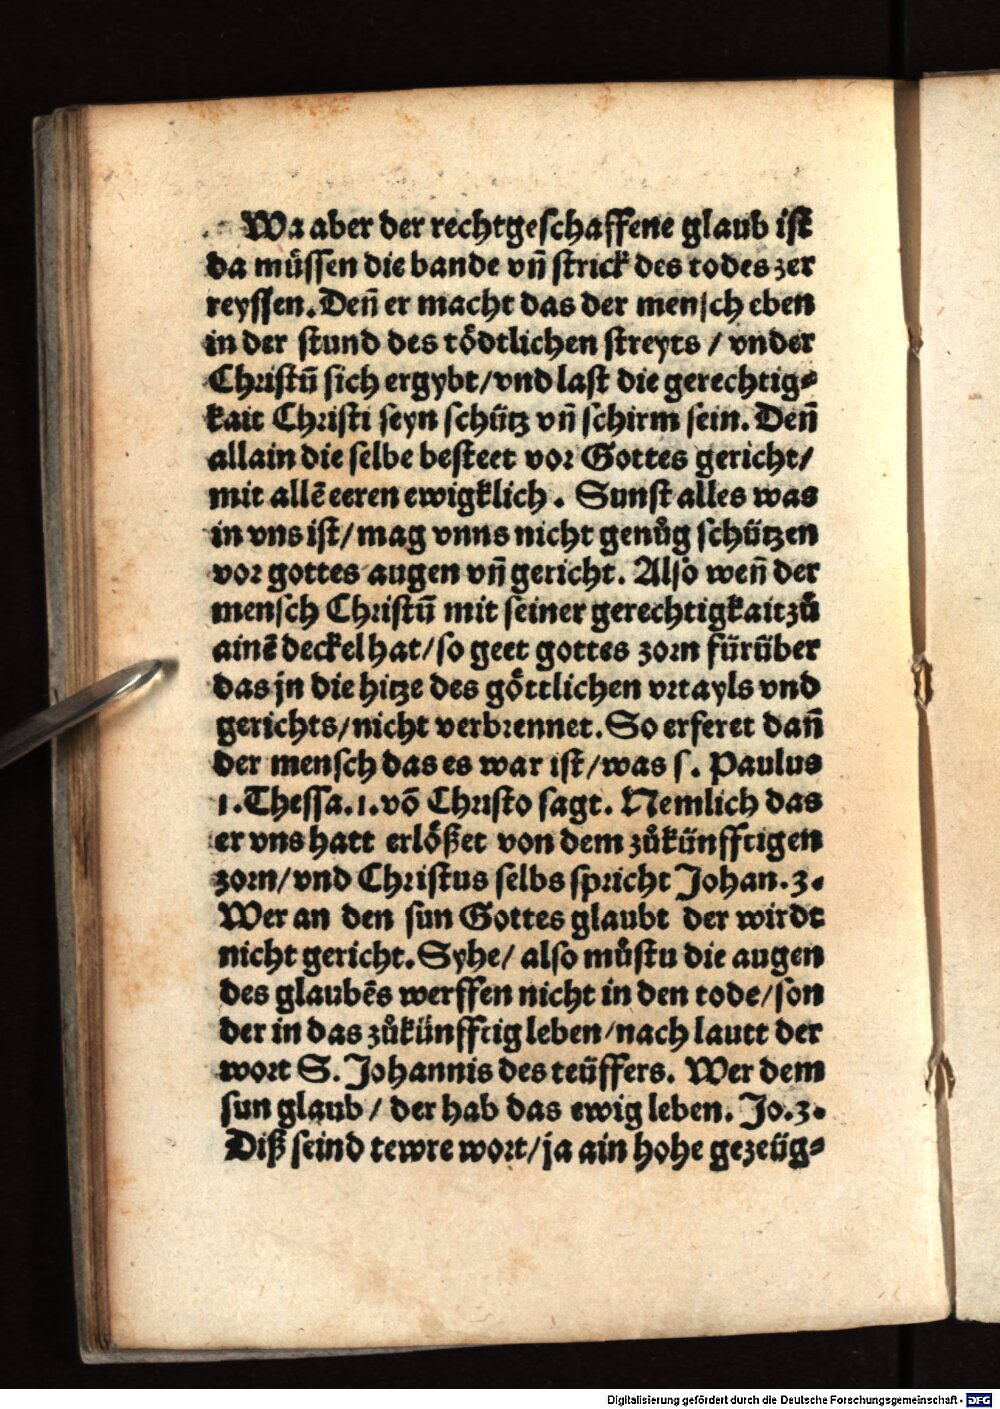 Wa aber der rechtgeschaffene glaub ist
da müssen die bande vñ strick des todes zer
reyssen. Deñ er macht das der mensch eben
in der stund des tödtlichen streyts / vnder
Christū sich ergybt/vnd last die gerechtig⸗
kait Christi seyn schütz vñ schirm sein. Deñ
allain die selbe besteet vor Gottes gericht/
mit allē eeren ewigklich. Sunst alles was
in vns ist/mag vnns nicht genůg schützen
vor gottes augen vñ gericht. Also weñ der
mensch Christū mit seiner gerechtigkait zů
ainē deckel hat/so geet gottes zorn fürüber
das jn die hitze des göttlichen vrtayls vnd
gerichts/nicht verbrennet. So erferet dañ
der mensch das es war ist/was s. Paulus
1. Thessa. 1. võ Christo sagt. Nemlich das
er vns hatt erlößet von dem zůkünfftigen
zorn/vnd Christus selbs spricht Johan. 3.
Wer an den sun Gottes glaubt der wirdt
nicht gericht. Syhe/ also můstu die augen
des glaubēs werffen nicht in den tode/son
der in das zůkünfftig leben/nach lautt der
wort S. Johannis des teüffers. Wer dem
sun glaub / der hab das ewig leben. Jo. 3.
Diß seind tewre wort/ja ain hohe gezeüg⸗
Digitalisierung gefördert durch die Deutsche Forschungsgemeinschaft - DFG